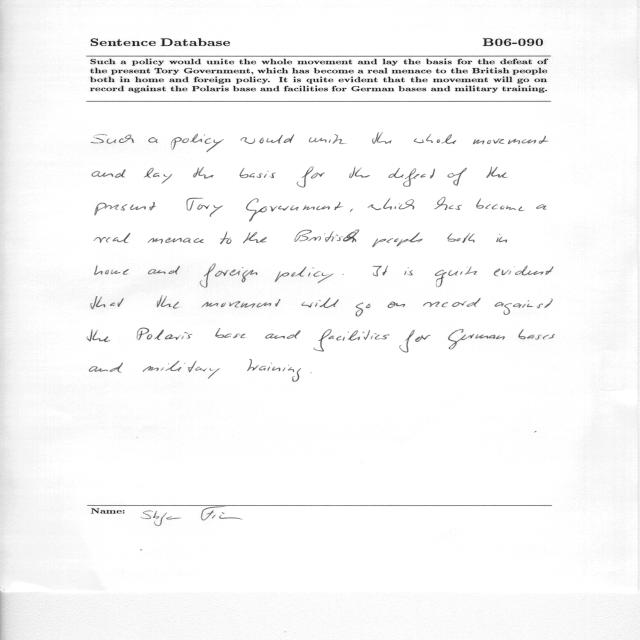 Sentence Database B06-090
Such a policy would unite the whole movement and lay the basis for the defeat of
the present Tory Government, which has become a real menace to the British people
both in home and foreign policy. It is quite evident that the movement will go on
record against the Polaris base and facilities for German bases and military training.
Such a policy would unite the whole movement
and lay the basis for the defeat of the
present Tory Government, which has become a
real menace to the British people both in
home and foreign policy. It is quite evident
that the movement will go on record against
the Polaris base and facilities for German bases
and military training.
Name: